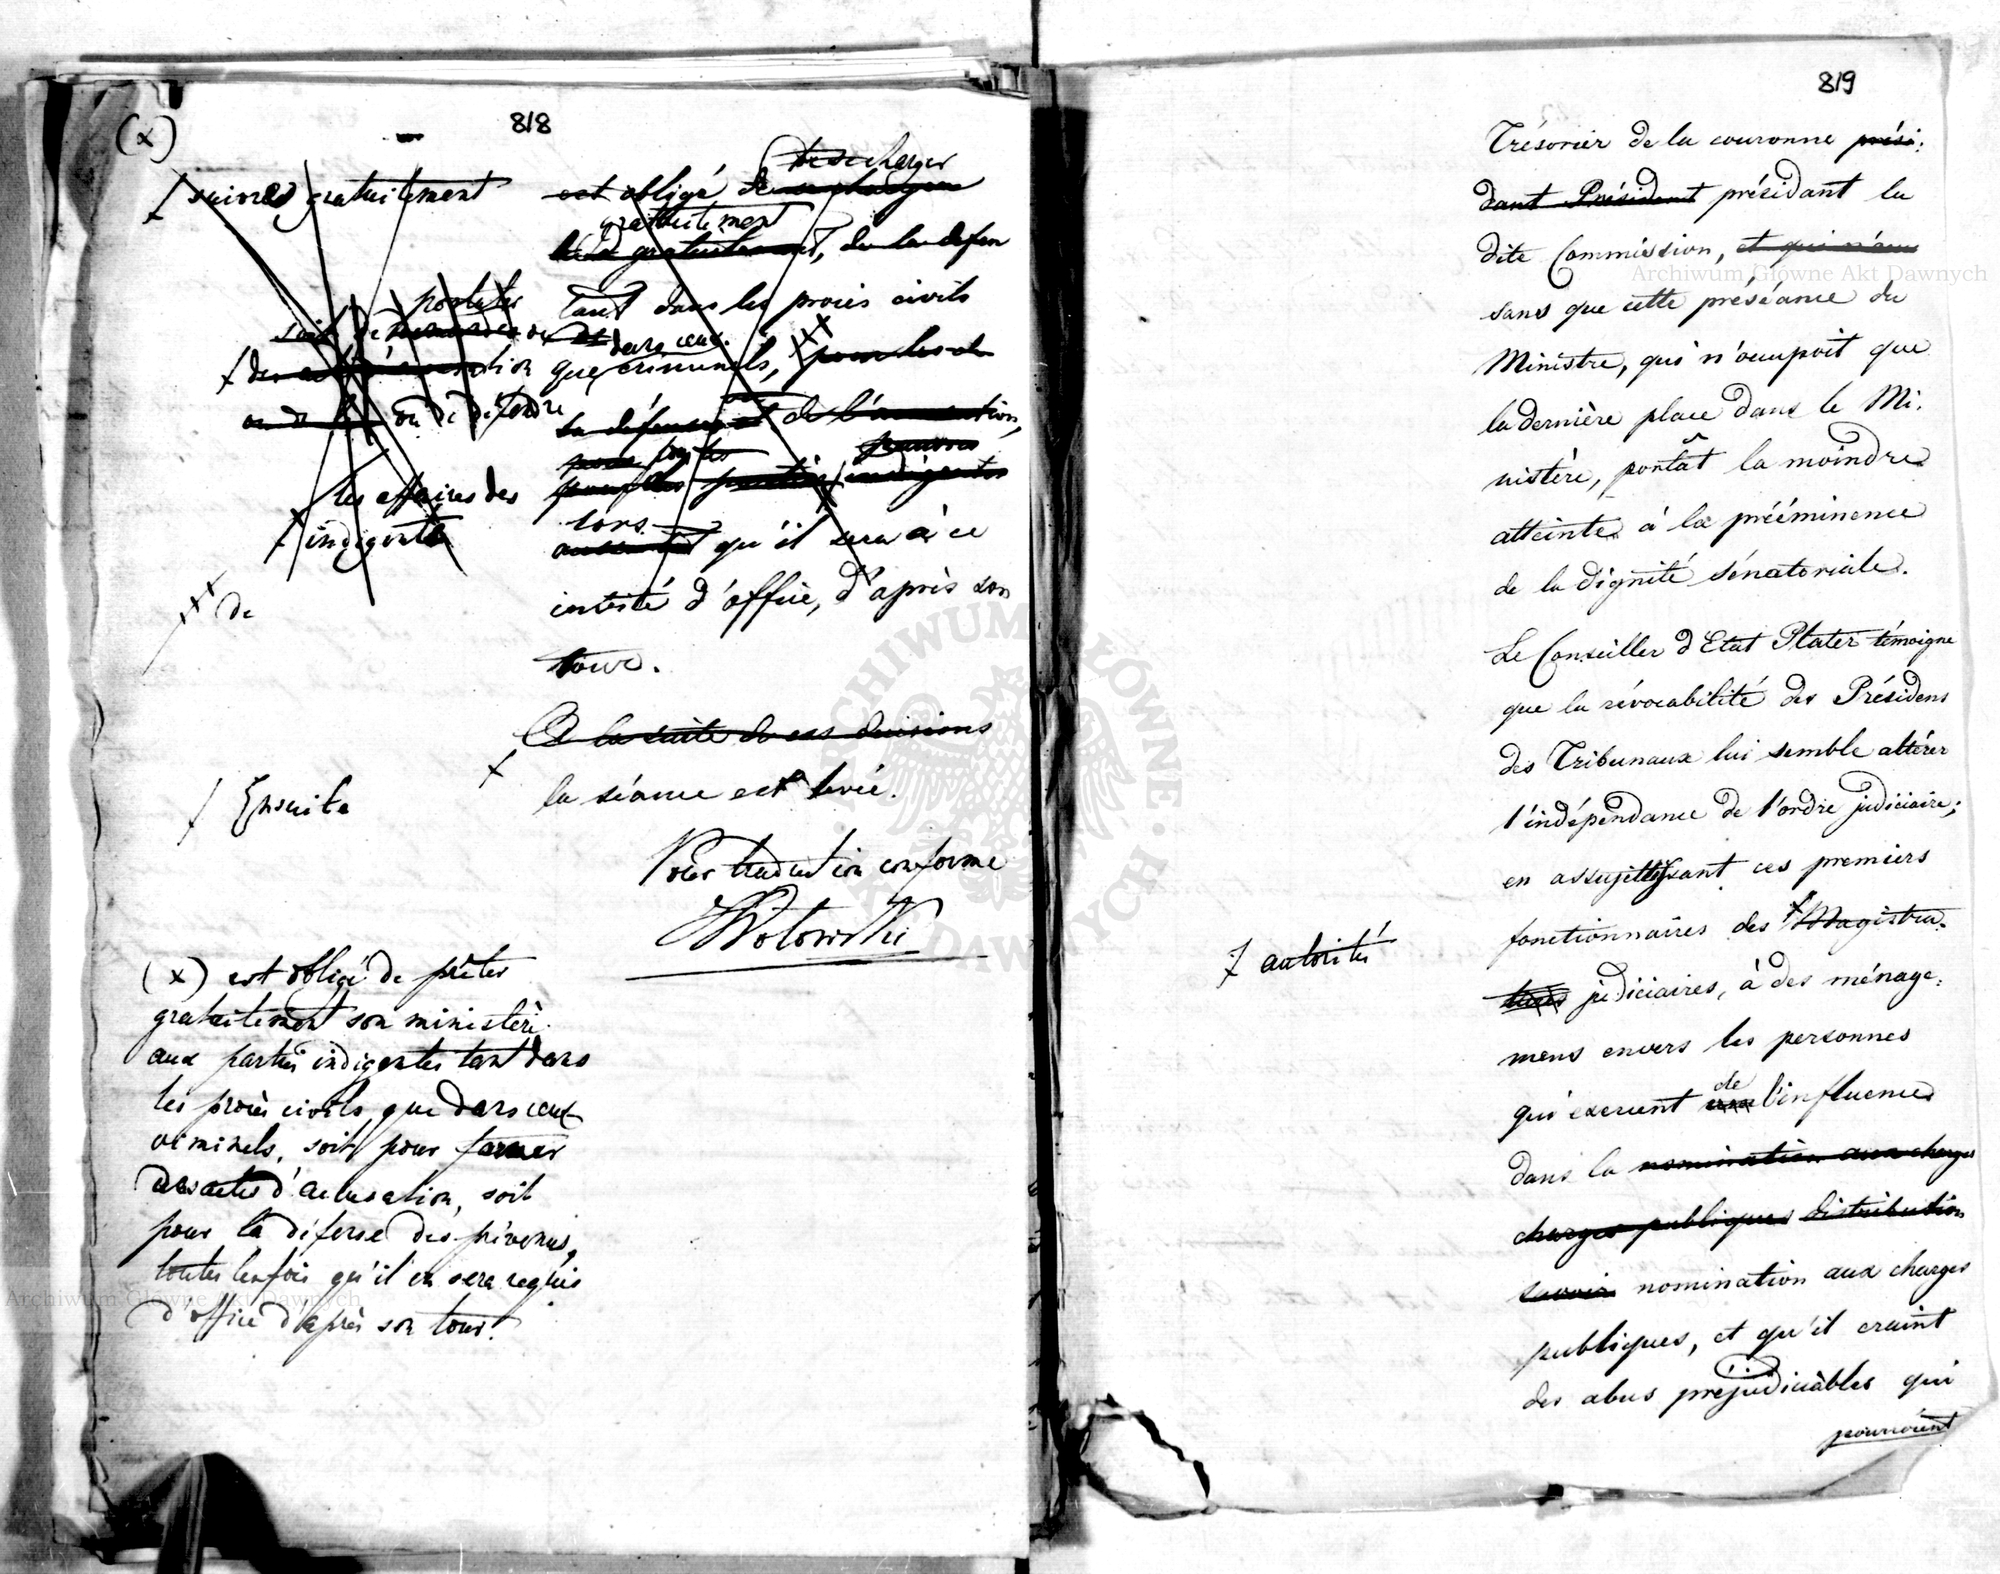 818
(x)
suivre gratuitement
de se charger
est obligé de se charger
gratuitement
gratuitement, de la défen
tant dans les procès civils
porter
soit de
dans ceux
que criminels, pour les
ou de défendre
la défense et de l'accusation,
pauvres
pour les parties indigentes
les affaires des
indigents
lors
qu'il sera à ce
de
intesté d'office, d'après son
tour.
A la suite de ces décisions
Ensuite
la séance est levée.
Pour traduction conforme
Wolowski
(x) est obligé de prêter
gratuitement son ministère
aux parties indigentes tant dans
les procès civils, que dans ceux
criminels, soit pour former
des actes d'accusation, soit
pour la défense des prévenus,
toutes les fois qu'il en sera requis
d'office d'après son tour.
819
Trésorier de la couronne prési-
dant Président présidant la
dite Commission, et qui
sans que cette préséance du
Ministre, qui n'occupoit que
la dernière place dans le Mi-
nistère, portât la moindre
atteinte à la prééminence
de la dignité sénatoriale.
Le Conseiller d'Etat Plater témoigne
que la révocabilité des Présidens
des Tribunaux lui semble altérer
l'indépendance de l'ordre judiciaire;
en assujettissant ces premiers
fonctionnaires des Magistra-
autorités
tures judiciaires, à des ménage-
mens envers les personnes
de
qui exercent l'influence
dans la nomination aux charges
charges publiques distribution
savoir nomination aux charges
publiques, et qu'il craint
des abus préjudiciàbles qui
pourroient
Archiwum Główne Akt Dawnych
Archiwum Główne Akt Dawnych
ARCHIWUM GŁÓWNE AKT DAWNYCH